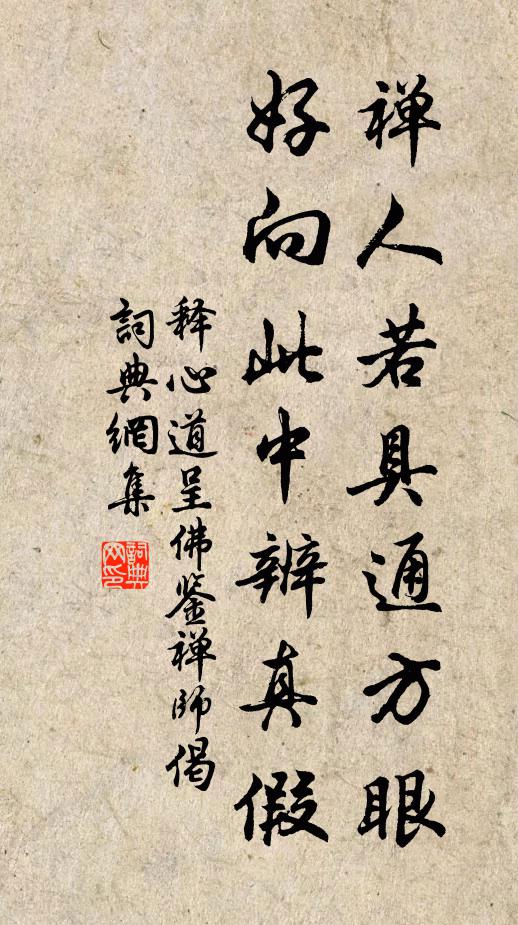 禅人若具通方眼
好向此中辨真假
释心道呈佛鉴禅师偈
詞典網集
詞典網印